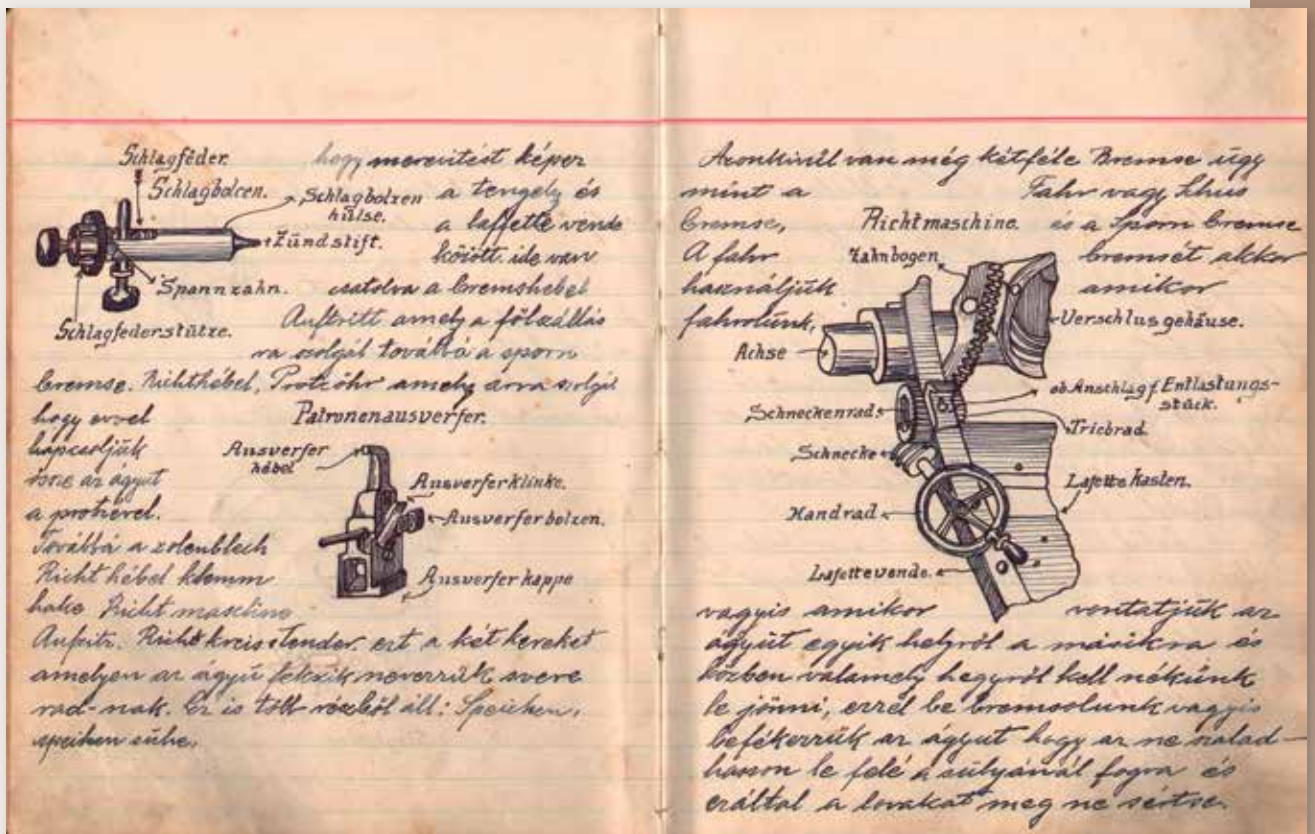 Schlagféder.
Schlagbolcen.
Schlagbolzen
hülse.
Zündstift.
Spannzahn.
Schlagfederstütze.
hogy merevitést képez
a tengely és
a laffette vende
között. ide van
csatolva a bremshebel
Auftritt amely a fölszállás
ra szolgál továbbá a sporn
bremse. Richthébel, Protzöhr amely arra szolgál
hogy evvel
kapcsoljük
össze az ágyut
a protzével.
Továbbá a zolenblech
Richt hébel klemm
hake Richt maschine
Patronenausverfer.
Ausverfer
hébel
Ausverfer klinke.
Ausverfer bolzen.
Ausverfer kappe
Aufsitz. Richt kreis stender. ezt a két kereket
amelyen az ágyú fekszik nevezzük svere
rad-nak. Ez is több részből áll: Speichen,
speihen
Azonkivül van még kétféle Bremse úgy
mint a Fahr vagy Schus
bremse, és a Sporn bremse
A fahr bremsét akkor
használjük amikor
fahrolunk,
Richtmaschine.
Zahnbogen
Verschlus gehäuse.
Achse
ob. Anschlag f. Entlastungs-
stück.
Schneckenrad
Tricbrad.
Schnecke
Lafette kasten.
Handrad
Lafettevende.
vagyis amikor vontatjük az
ágyút egyik helyről a másikra és
közben valamely hegyről kell nékünk
le jönni, ezzel be bremsolunk vagyis
befékezzük az ágyut hogy az ne szalad-
hasson le felé a súlyánál fogva és
ezáltal a lovakat meg ne sértse.